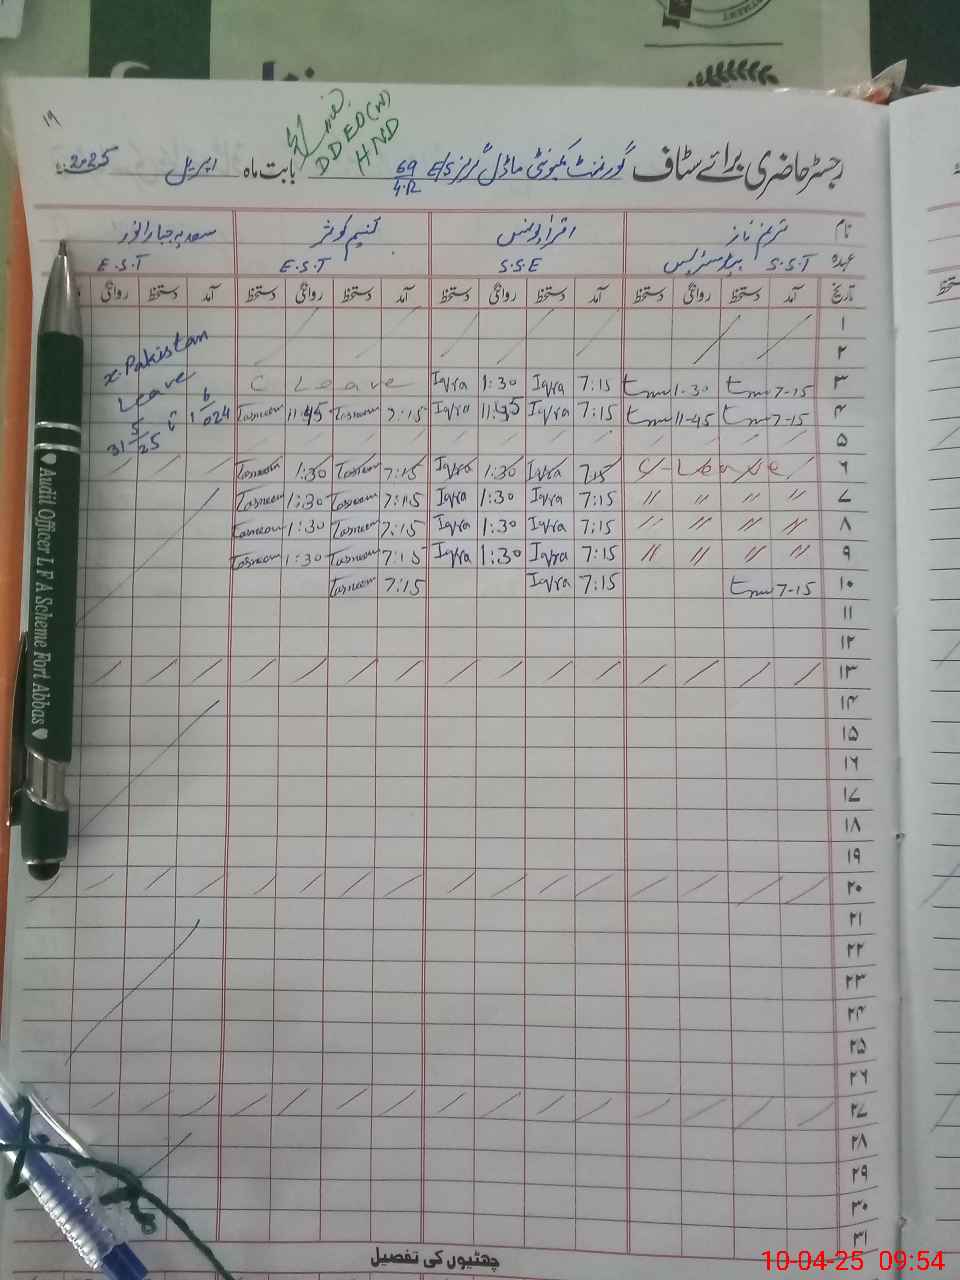 ۱۹
DDEO(W)
HND
رجسٹر حاضری برائے سٹاف گورنمنٹ کمیونٹی ماڈل گرلز E/S 69/4.R بابت ماہ اپریل 2025
نام ترنم ناز اقرا یونس تسنیم کوثر
عہدہ S.S.T ہیڈ مسٹریس S.S.E E.S.T E.S.T
تاریخ آمد دستخط روانگی دستخط آمد دستخط روانگی دستخط آمد دستخط روانگی دستخط آمد دستخط روانگی
۱
۲
x-Pakistan
Leave
1/6/024 تا 31/5/25
۳ 7-15 1-30 7:15 Iqra 1:30 Iqra C Leave
۴ 7-15 11-45 7:15 Iqra 11:45 Iqra 7:15 Tasneem 11:45 Tasneem
۵
۶ Leave 7:15 Iqra 1:30 Iqra 7:15 Tasneem 1:30 Tasneem
۷ " " " " 7:15 Iqra 1:30 Iqra 7:15 Tasneem 1:30 Tasneem
۸ " " " " 7:15 Iqra 1:30 Iqra 7:15 Tasneem 1:30 Tasneem
۹ " " " " 7:15 Iqra 1:30 Iqra 7:15 Tasneem 1:30 Tasneem
۱۰ 7-15 7:15 Iqra 7:15 Tasneem
۱۱
۱۲
۱۳
۱۴
۱۵
۱۶
۱۷
۱۸
۱۹
۲۰
۲۱
۲۲
۲۳
۲۴
۲۵
۲۶
۲۷
۲۸
۲۹
۳۰
۳۱
چھٹیوں کی تفصیل
♥ Audit Officer L F A Scheme Fort Abbas ♥
10-04-25 09:54